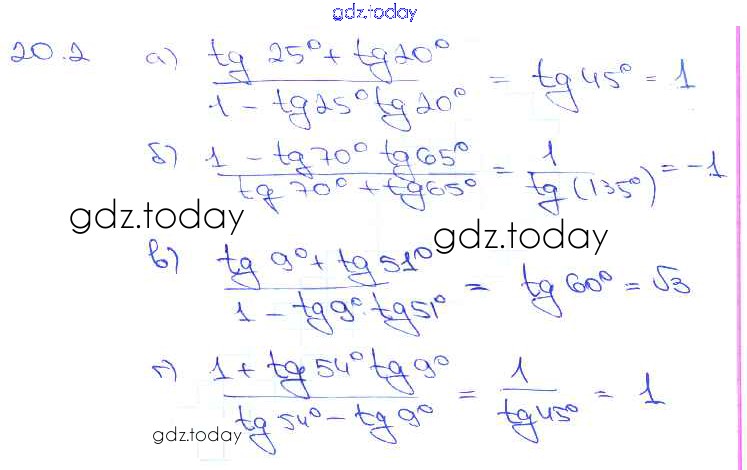 gdz.today
20.2 а) (tg 25° + tg 20°) / (1 - tg 25° tg 20°) = tg 45° = 1
б) (1 - tg 70° tg 65°) / (tg 70° + tg 65°) = 1 / tg (135°) = -1
gdz.today
gdz.today
в) (tg 9° + tg 51°) / (1 - tg 9° · tg 51°) = tg 60° = √3
г) (1 + tg 54° tg 9°) / (tg 54° - tg 9°) = 1 / tg 45° = 1
gdz.today